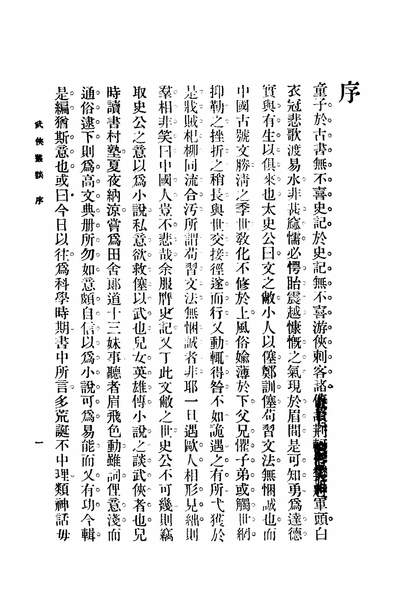 序
童子於古書無不喜史記於史記無不喜游俠刺客諸傳
軍頭白
衣冠悲歌渡易水非甚窳懦必愕眙震越慷慨之氣現於眉間是可知勇爲達德
實與有生以俱來也太史公曰文之敝小人以僿鄭訓僿苟習文法無悃誠也而
中國古號文勝淸之季世敎化不修於上風俗婾薄於下父兄懼子弟或觸世網
抑勒之挫折之稍長與世交接徑遂而行又動輒得咎不如詭遇之有所弋獲於
是戕賊杞柳同流合汚所謂苟習文法無悃誠者非耶一旦遇歐人相形見絀則
羣相非笑曰中國人豈不悲哉余服膺史記又丁此文敝之世史公不可幾則竊
取史公之意以爲小說私意欲救僿以武也兒女英雄傳小說之談武俠者也兒
時讀書村塾夏夜納涼嘗爲田舍郞道十三妹事聽者眉飛色動雖詞俚意淺而
通俗逮下則爲高文典册所勿如意頗自信以爲小說可爲易能而又有功今輯
是編猶斯意也或曰今日以往爲科學時期書中所言多荒誕不中理類神話毋
武俠叢談 序
一